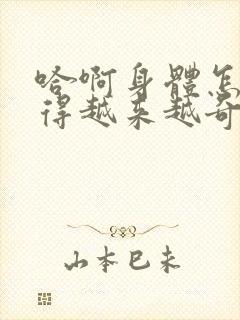 哈啊身體怎
得越来越奇
山本巳未